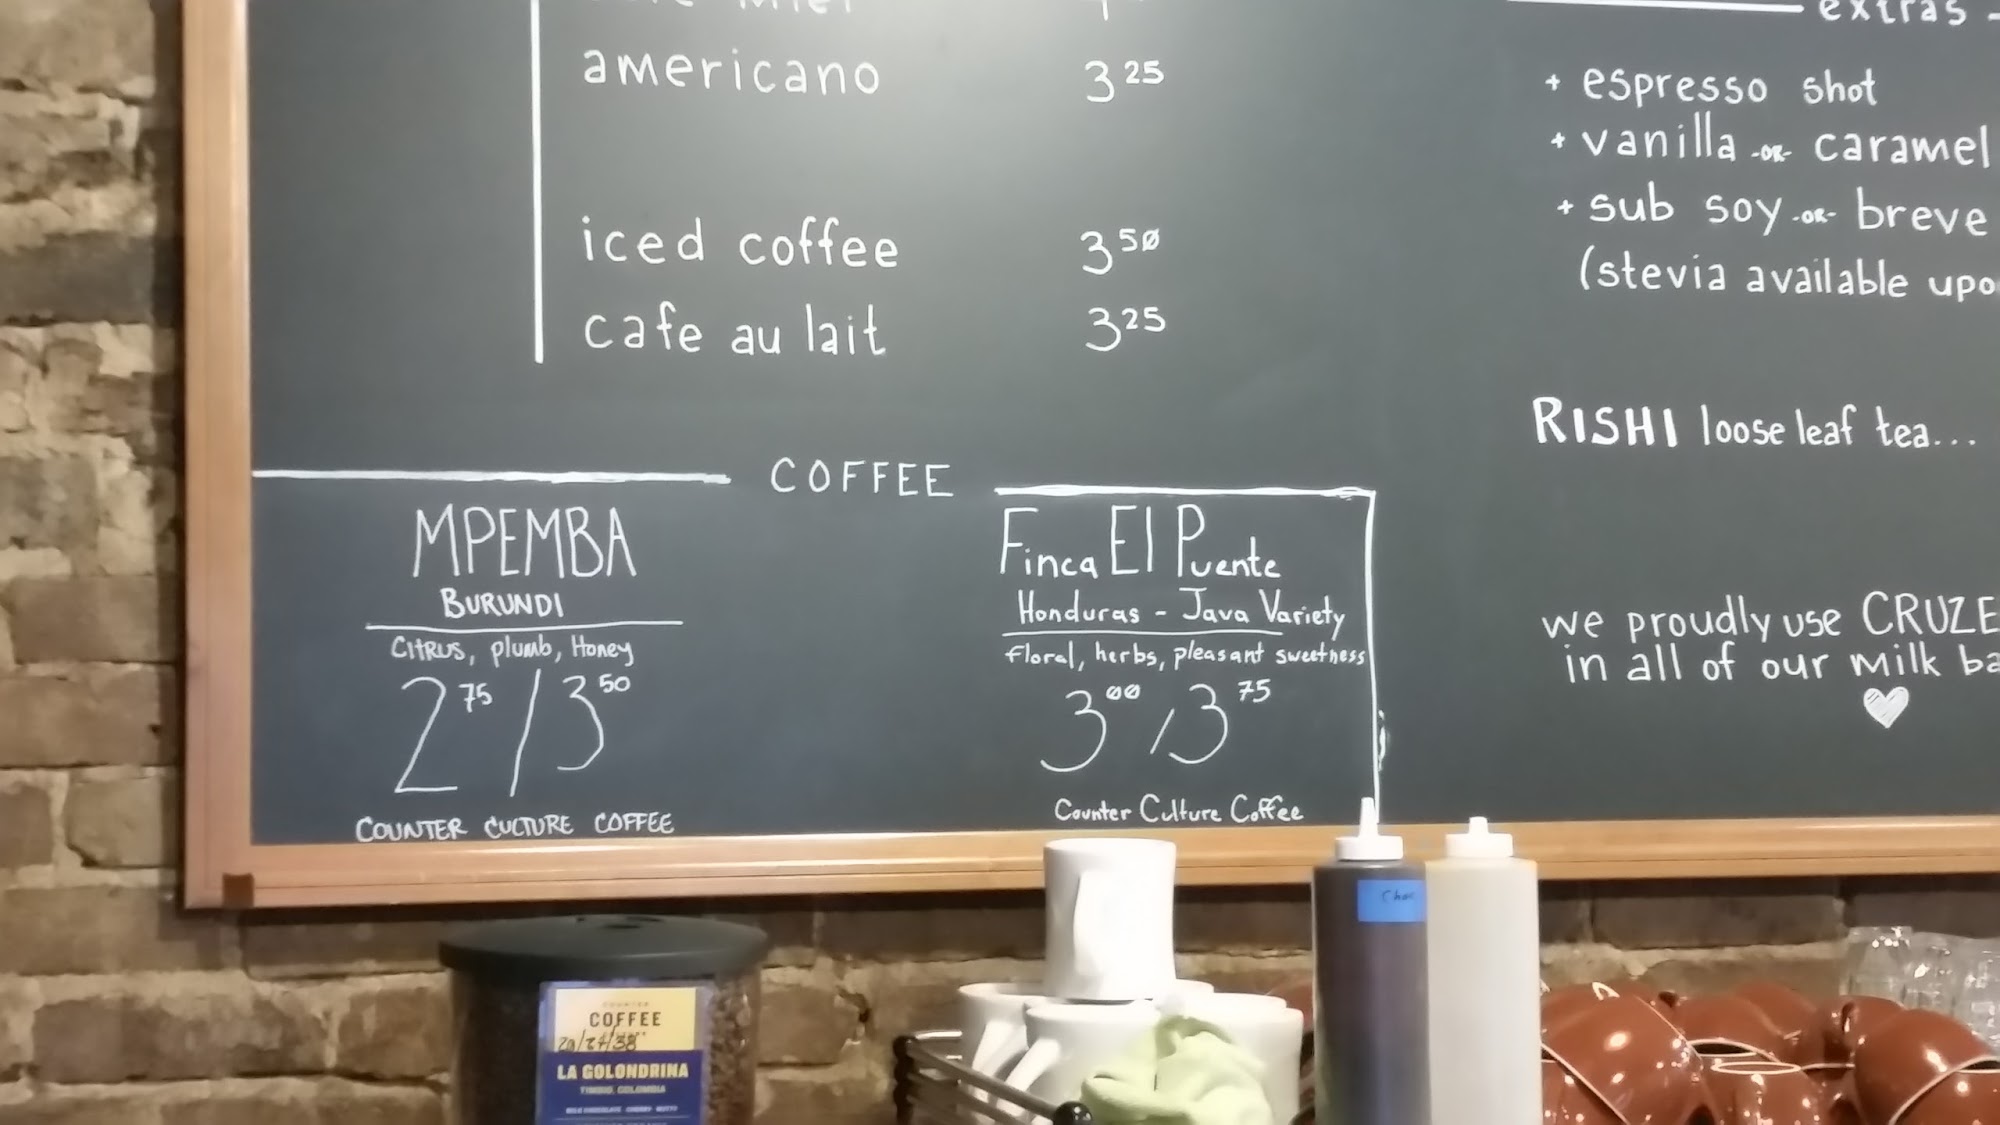 americano 3 25
iced coffee 3 50
cafe au lait 3 25
extras -
+ espresso shot
+ vanilla -OR- caramel
+ sub soy -OR- breve
(stevia available upo
RISHI loose leaf tea...
we proudly use CRUZE
in all of our milk ba
COFFEE
MPEMBA
BURUNDI
CITRUS, plumb, Honey
2 75 / 3 50
COUNTER CULTURE COFFEE
Finca El Puente
Honduras - Java Variety
floral, herbs, pleasant sweetness
3 00 / 3 75
Counter Culture Coffee
COUNTER
COFFEE
LA GOLONDRINA
TIMBIO, COLOMBIA
MILK CHOCOLATE CHERRY NUTTY